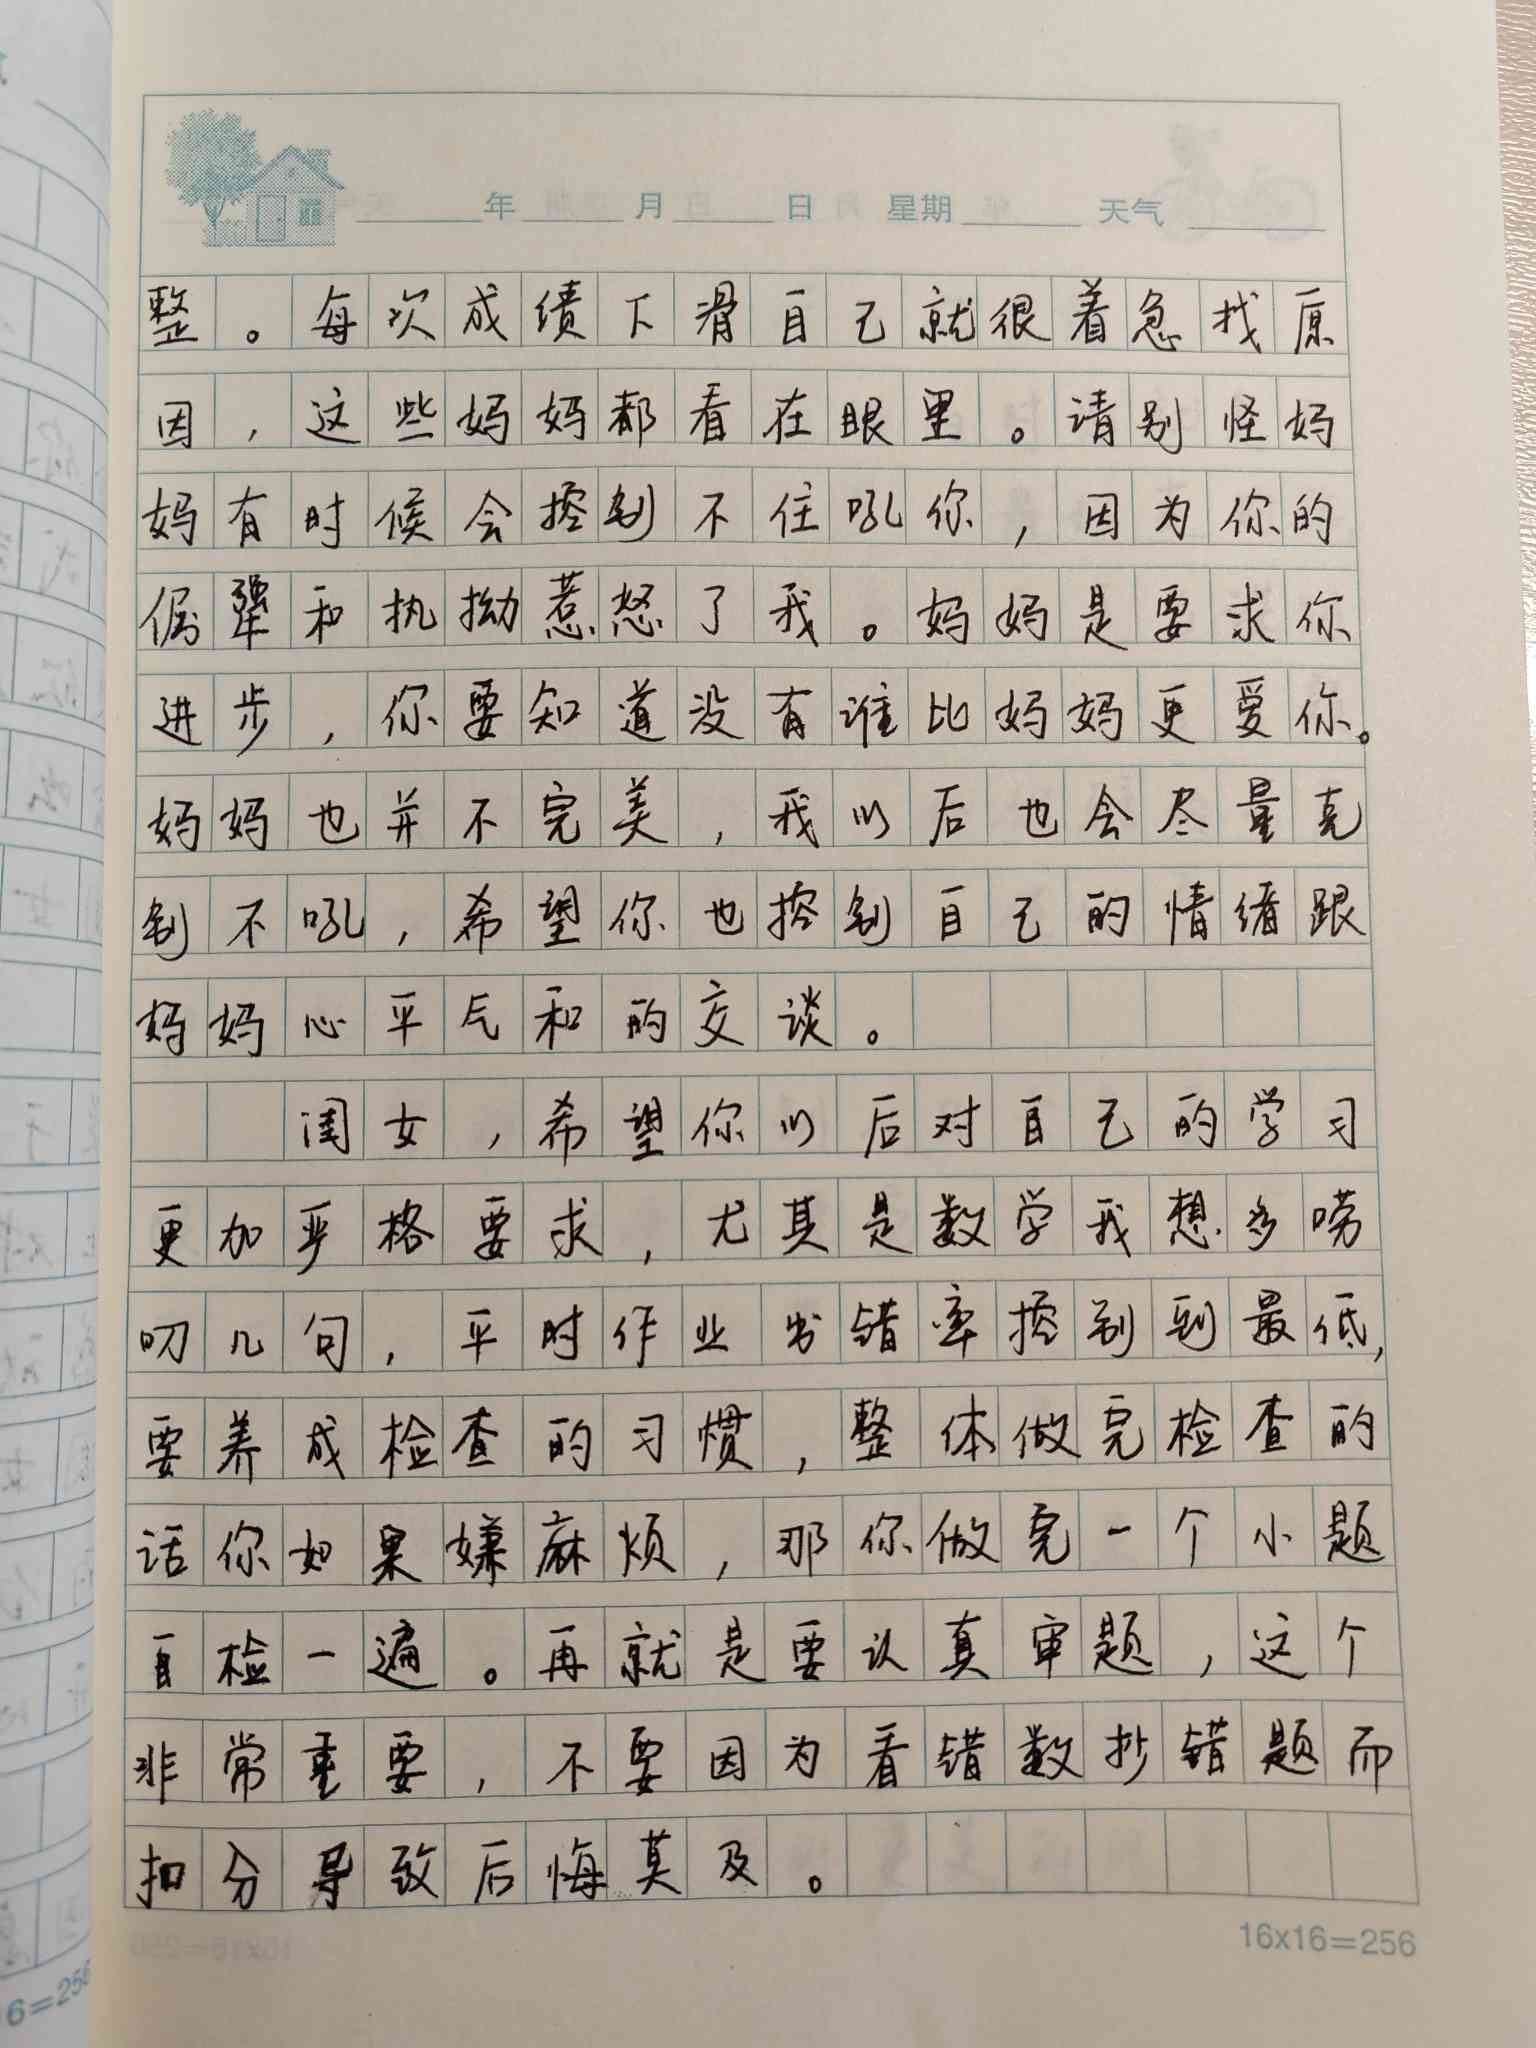 年 月 日 星期 天气
整。每次成绩下滑自己就很着急找原
因,这些妈妈都看在眼里。请别怪妈
妈有时候会控制不住吼你,因为你的
倔犟和执拗惹怒了我。妈妈是要求你
进步,你要知道没有谁比妈妈更爱你。
妈妈也并不完美,我以后也会尽量克
制不吼,希望你也控制自己的情绪跟
妈妈心平气和的交谈。
闺女,希望你以后对自己的学习
更加严格要求,尤其是数学我想多唠
叨几句,平时作业出错率控制到最低,
要养成检查的习惯,整体做完检查的
话你如果嫌麻烦,那你做完一个小题
自检一遍。再就是要认真审题,这个
非常重要,不要因为看错数抄错题而
扣分导致后悔莫及。
16x16=256
6=256